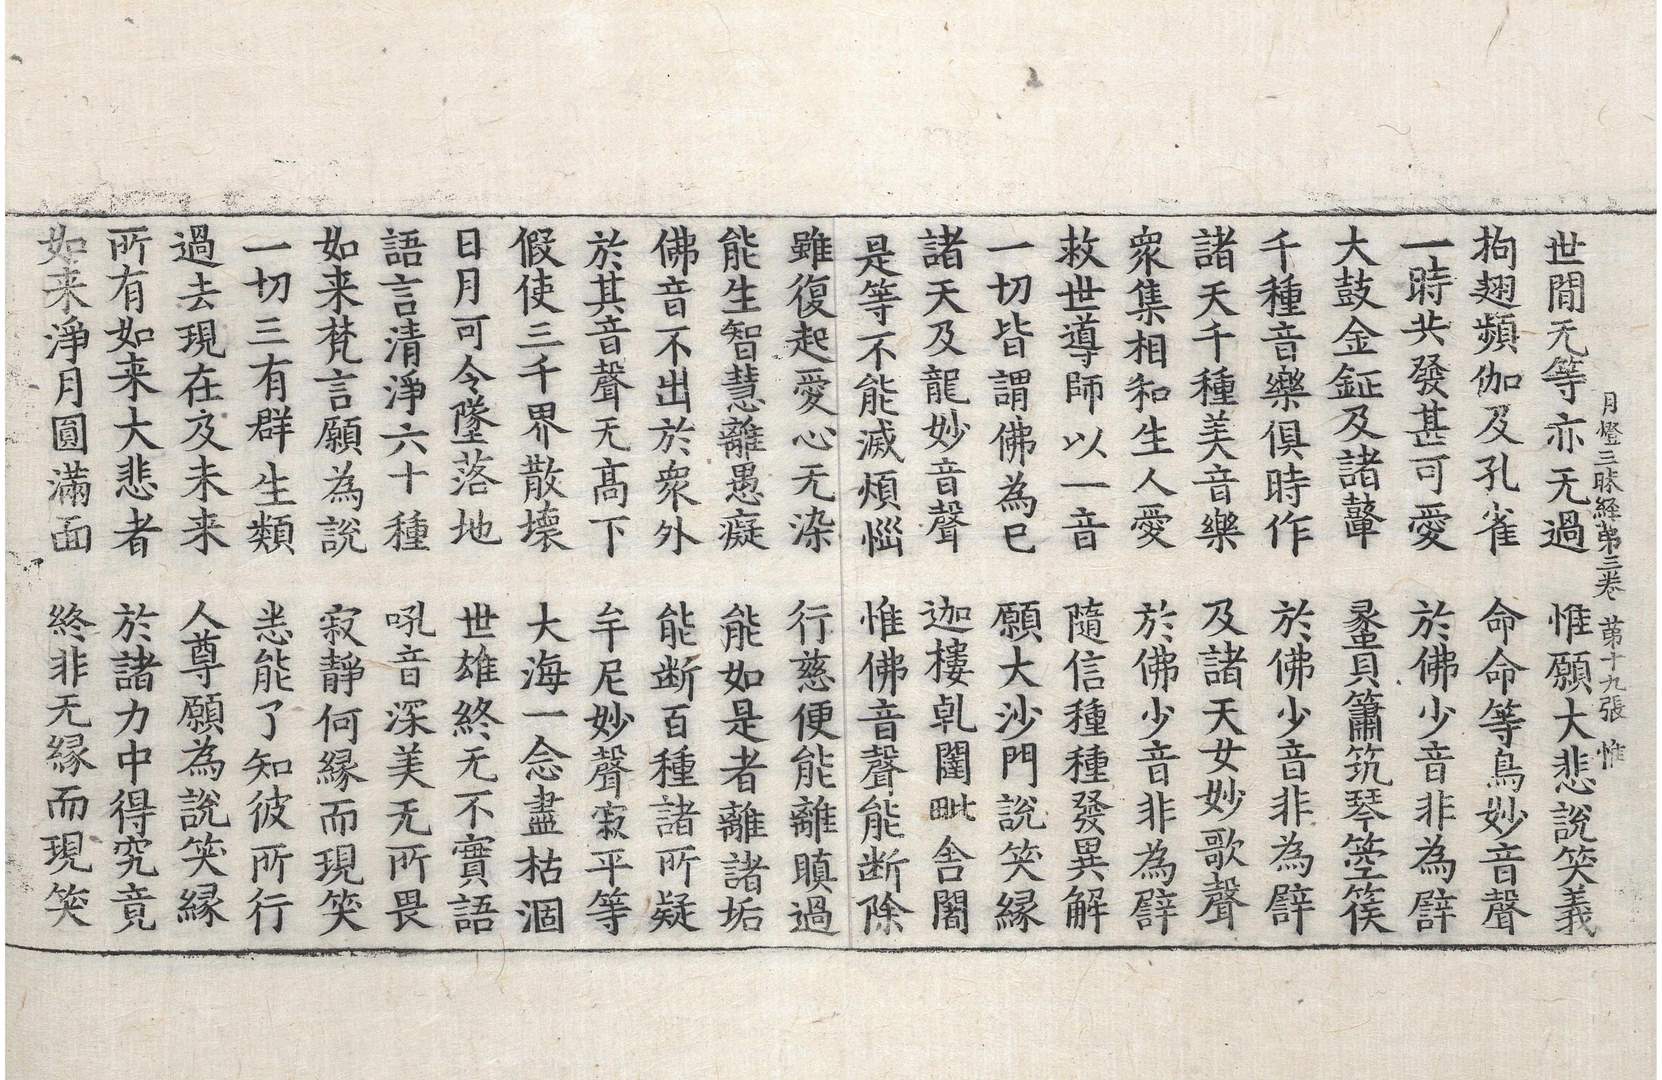 月燈三昧経苐三卷 苐十九張 惟
世間无等亦无過 惟願大悲說笑義
拘翅頻伽及孔雀 命命等鳥妙音聲
一時共發甚可愛 於佛少音非為譬
大鼓金鉦及諸鼙 蠡貝簫筑琴箜篌
千種音樂俱時作 於佛少音非為譬
諸天千種美音樂 及諸天女妙歌聲
衆集相和生人愛 於佛少音非為譬
救世導師以一音 隨信種種發異解
一切皆謂佛為已 願大沙門說笑縁
諸天及龍妙音聲 迦樓乹闥毗舍闍
是等不能滅煩惱 惟佛音聲能断除
雖復起愛心无染 行慈便能離瞋過
能生智慧離愚癡 能如是者離諸垢
佛音不出於衆外 能断百種諸所疑
於其音聲无高下 牟尼妙聲寂平等
假使三千界散壞 大海一念盡枯涸
日月可令墜落地 世雄終无不實語
語言清淨六十種 吼音深美无所畏
如来梵言願為說 寂靜何縁而現笑
一切三有群生類 悉能了知彼所行
過去現在及未来 人尊願為說笑縁
所有如来大悲者 於諸力中得究竟
如来淨月圓滿面 終非无縁而現笑